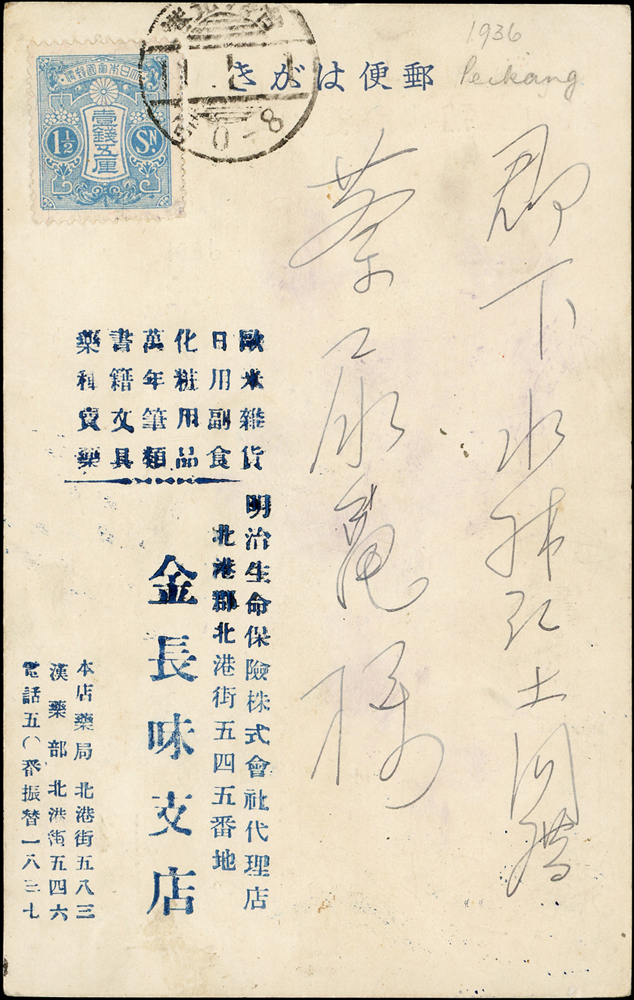 1936
Peikang
郵便はがき
大日本帝國郵便
壹錢五厘
1½ SN
0-8
郡下水林庄土間厝
蔡 永 様
歐米雜貨
日用副食
化粧用品
萬年筆類
書籍文具
藥種賣藥
明治生命保險株式會社代理店
北港郡北港街五四五番地
金長味支店
本店藥局 北港街五八三
漢藥部 北港街五四六
電話五〇番振替一八三七